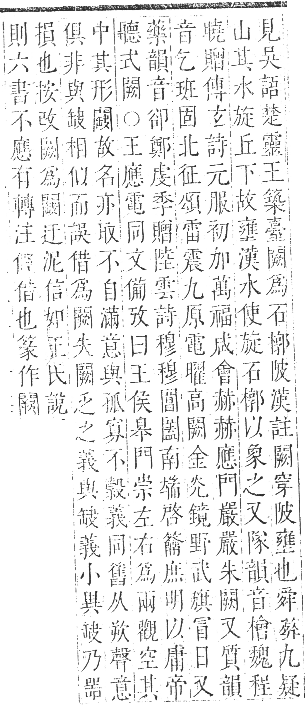 見吳語楚靈王築臺闕爲石郭陂漢註闕穿陂壅也舜葬九疑
山其水旋丘下故壅漢水使旋石郭以象之又隊韻音檜魏程
曉贈傅玄詩元服初加萬福咸會赫赫應門嚴嚴朱闕又質韻
音乞班固北征頌雷震九原電曜高闕金光鏡野武旗冒日又
藥韻音卻鄭虔季贈陸雲詩穆穆閶闔南端啓籥庶明以庸帝
聽式闕○王應電同文備攷曰王侯皋門崇左右爲兩觀空其
中其形闕故名亦取不自滿意與孤寡不穀義同舊从欮聲意
俱非與缺相似而誤借爲闕失闕乏之義與缺義小異缺乃器
損也按攷闕爲闕迂泥信如王氏說
則六書不應有轉注假借也篆作闕